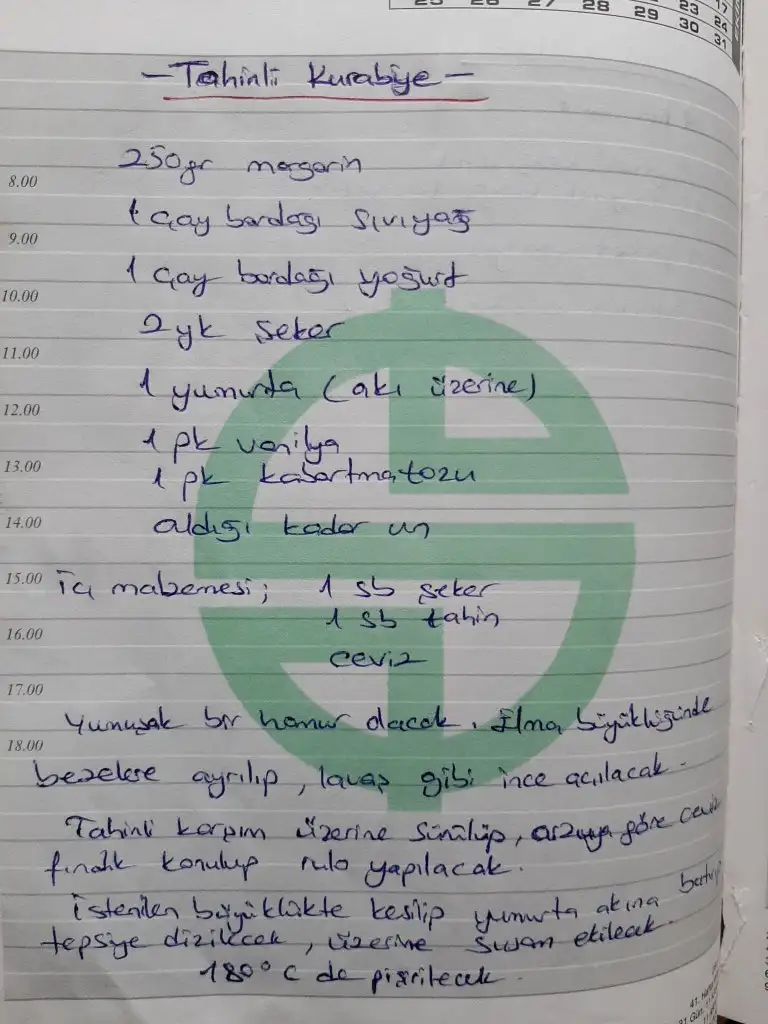 25 26 27 28 29 30 31
23 24
17
- Tahinli Kurabiye -
250gr margarin
8.00
1 çay bardağı sıvıyağ
9.00
1 çay bardağı yoğurt
10.00
2 yk şeker
11.00
1 yumurta (akı üzerine)
12.00
1 pk vanilya
13.00
1 pk kabartma tozu
14.00
aldığı kadar un
15.00
İç malzemesi; 1 sb şeker
1 sb tahin
16.00
ceviz
17.00
Yumuşak bir hamur olacak. Elma büyüklüğünde
18.00
bezelere ayrılıp, lavaş gibi ince açılacak.
Tahinli karışım üzerine sürülüp, arzuya göre ceviz
fındık konulup rulo yapılacak.
İstenilen büyüklükte kesilip yumurta akına batırıp
tepsiye dizilecek, üzerine susam ekilecek.
180°C de pişirilecek.